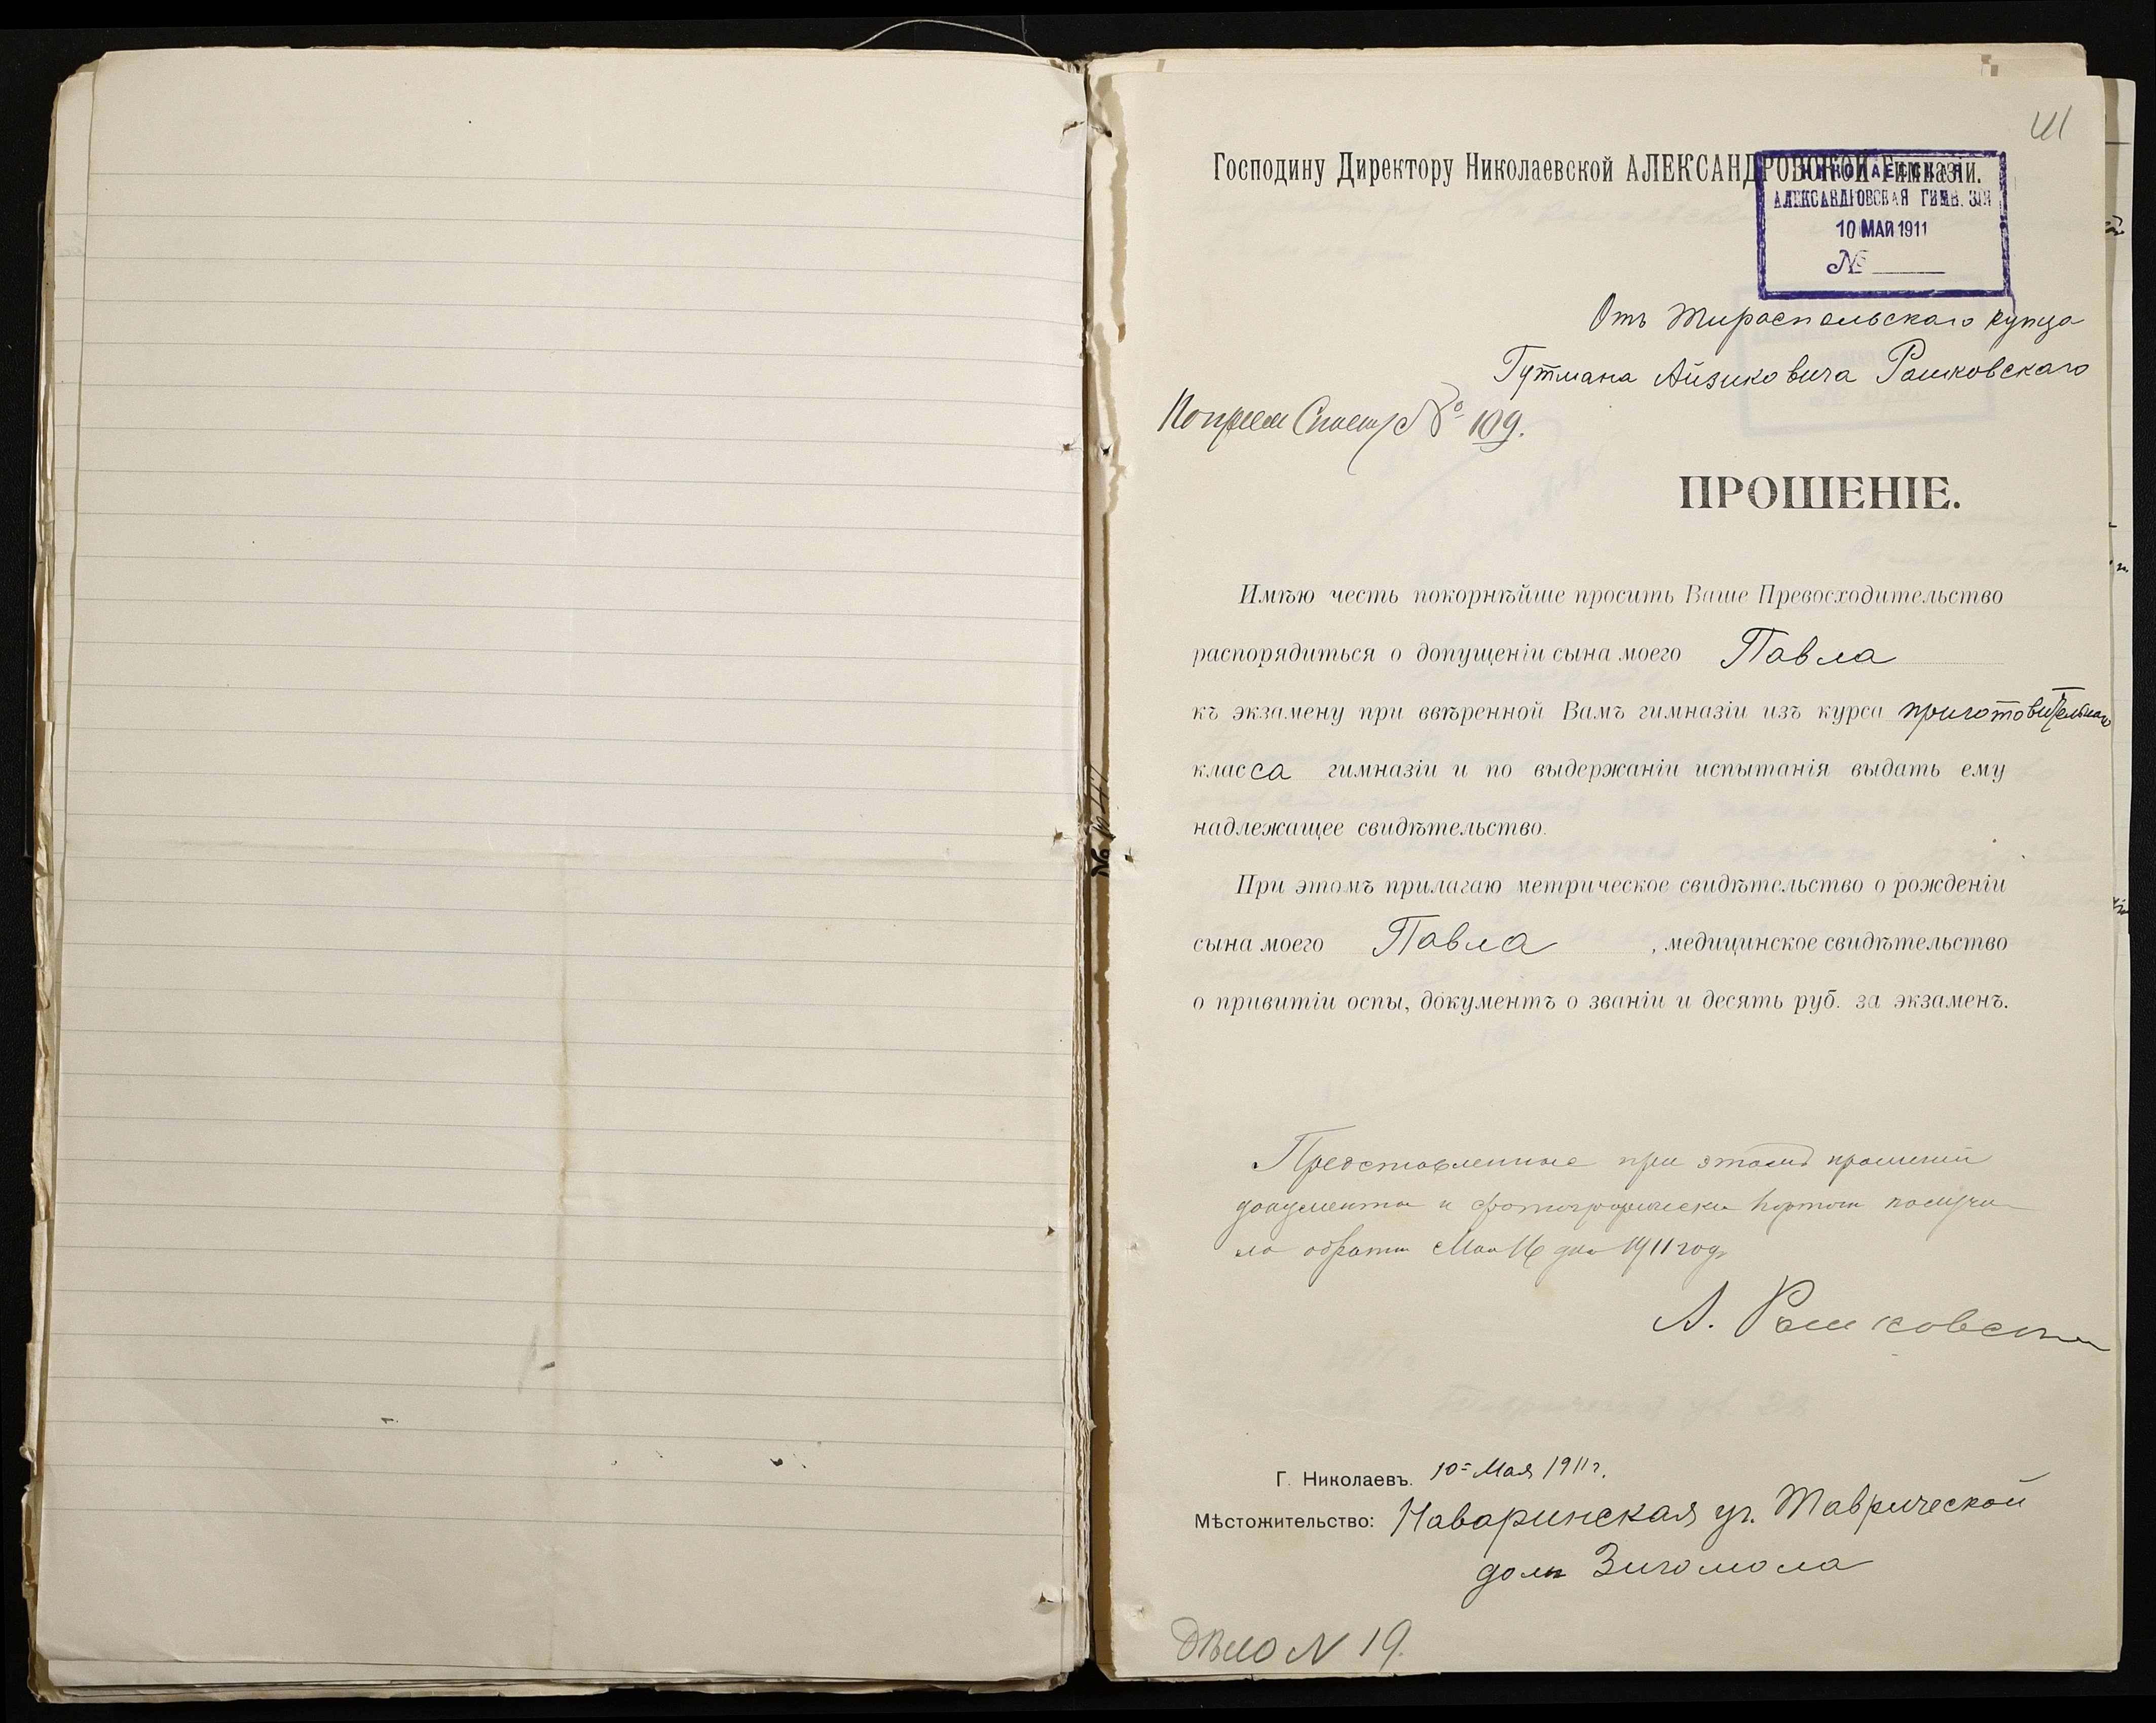 Господину Директору Николаевской АЛЕКСАНДРОВСКОЙ Гимназіи.
НИКОЛАЕВСКАЯ
АЛЕКСАНДРОВСКАЯ ГИМНАЗІЯ
10 МАЯ 1911
№
Отъ Тираспольскаго купца
Гутмана Айзиковича Рашковскаго
№ 109.
ПРОШЕНІЕ.
Имѣю честь покорнѣйше просить Ваше Превосходительство
распорядиться о допущеніи сына моего Павла
къ экзамену при ввѣренной Вамъ гимназіи изъ курса приготовительнаго
класса гимназіи и по выдержаніи испытанія выдать ему
надлежащее свидѣтельство.
При этомъ прилагаю метрическое свидѣтельство о рожденіи
сына моего Павла , медицинское свидѣтельство
о привитіи оспы, документъ о званіи и десять руб. за экзаменъ.
Представленные при этомъ прошеніи
документы и фотографическ получи-
ла обратно Мая 16 дня 1911 года
А. Рашковск
Г. Николаевъ. 10 Мая 1911 г.
Мѣстожительство: Наваринская уг. Таврической
домъ Зигомола
Дѣло N 19.